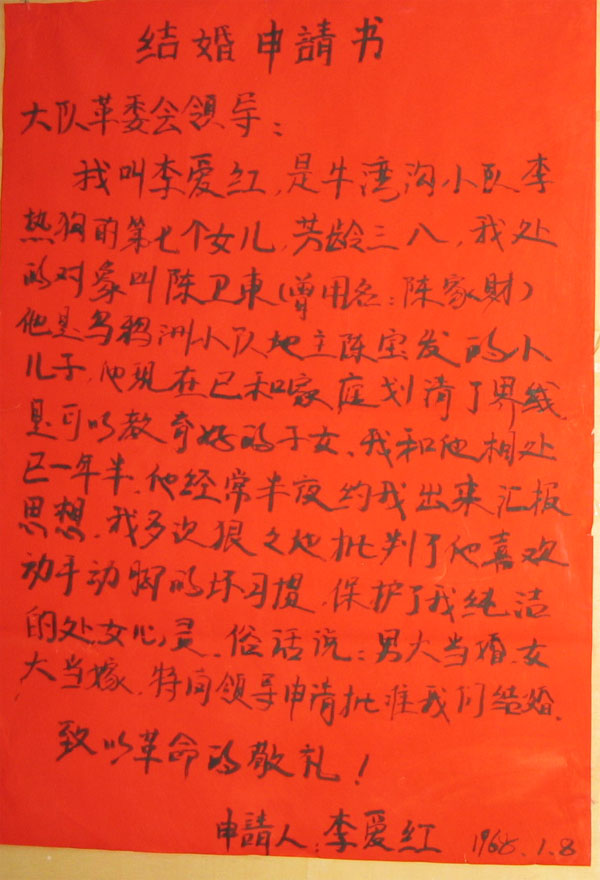 结婚申請书
大队革委会领导：
我叫李爱红，是牛湾沟小队李
热狗的第七个女儿，芳龄三八，我处
的对象叫陈卫東（曾用名：陈家财）
他是乌鸦洲小队地主陈宝发的小
儿子，他現在已和家庭划清了界线
是可以教育好的子女、我和他相处
已一年半，他经常半夜约我出来汇报
思想，我多次狠々地批判了他喜欢
动手动脚的坏习惯，保护了我纯洁
的处女心灵，俗话说：男大当婚，女
大当嫁，特向领导申请批准我们结婚，
致以革命的敬礼！
申請人：李爱红 1968.1.8